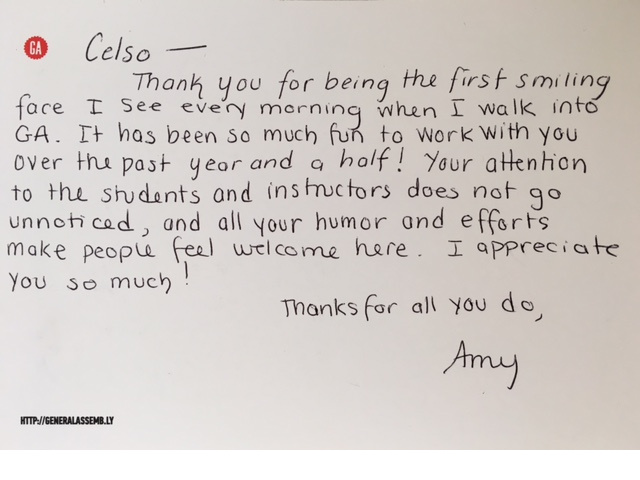 GA
Celso —
Thank you for being the first smiling
face I see every morning when I walk into
GA. It has been so much fun to work with you
over the past year and a half! Your attention
to the students and instructors does not go
unnoticed, and all your humor and efforts
make people feel welcome here. I appreciate
you so much!
Thanks for all you do,
Amy
HTTP://GENERALASSEMB.LY